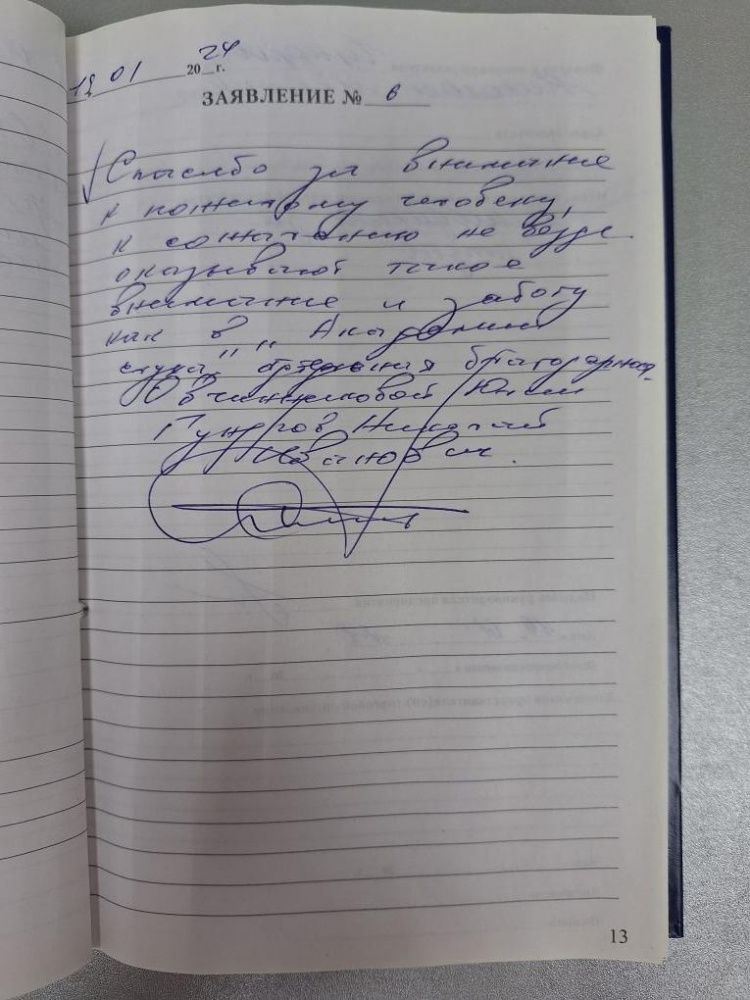 19 01 2024 г.
ЗАЯВЛЕНИЕ № 6
Спасибо за внимание
к пожилому человеку,
к сожалению не везде
оказывают такое
внимание и заботу
как в „Академии
слуха" "отдельная благодарность
Овчинниковой Юлии
Николай
Иванович.
13